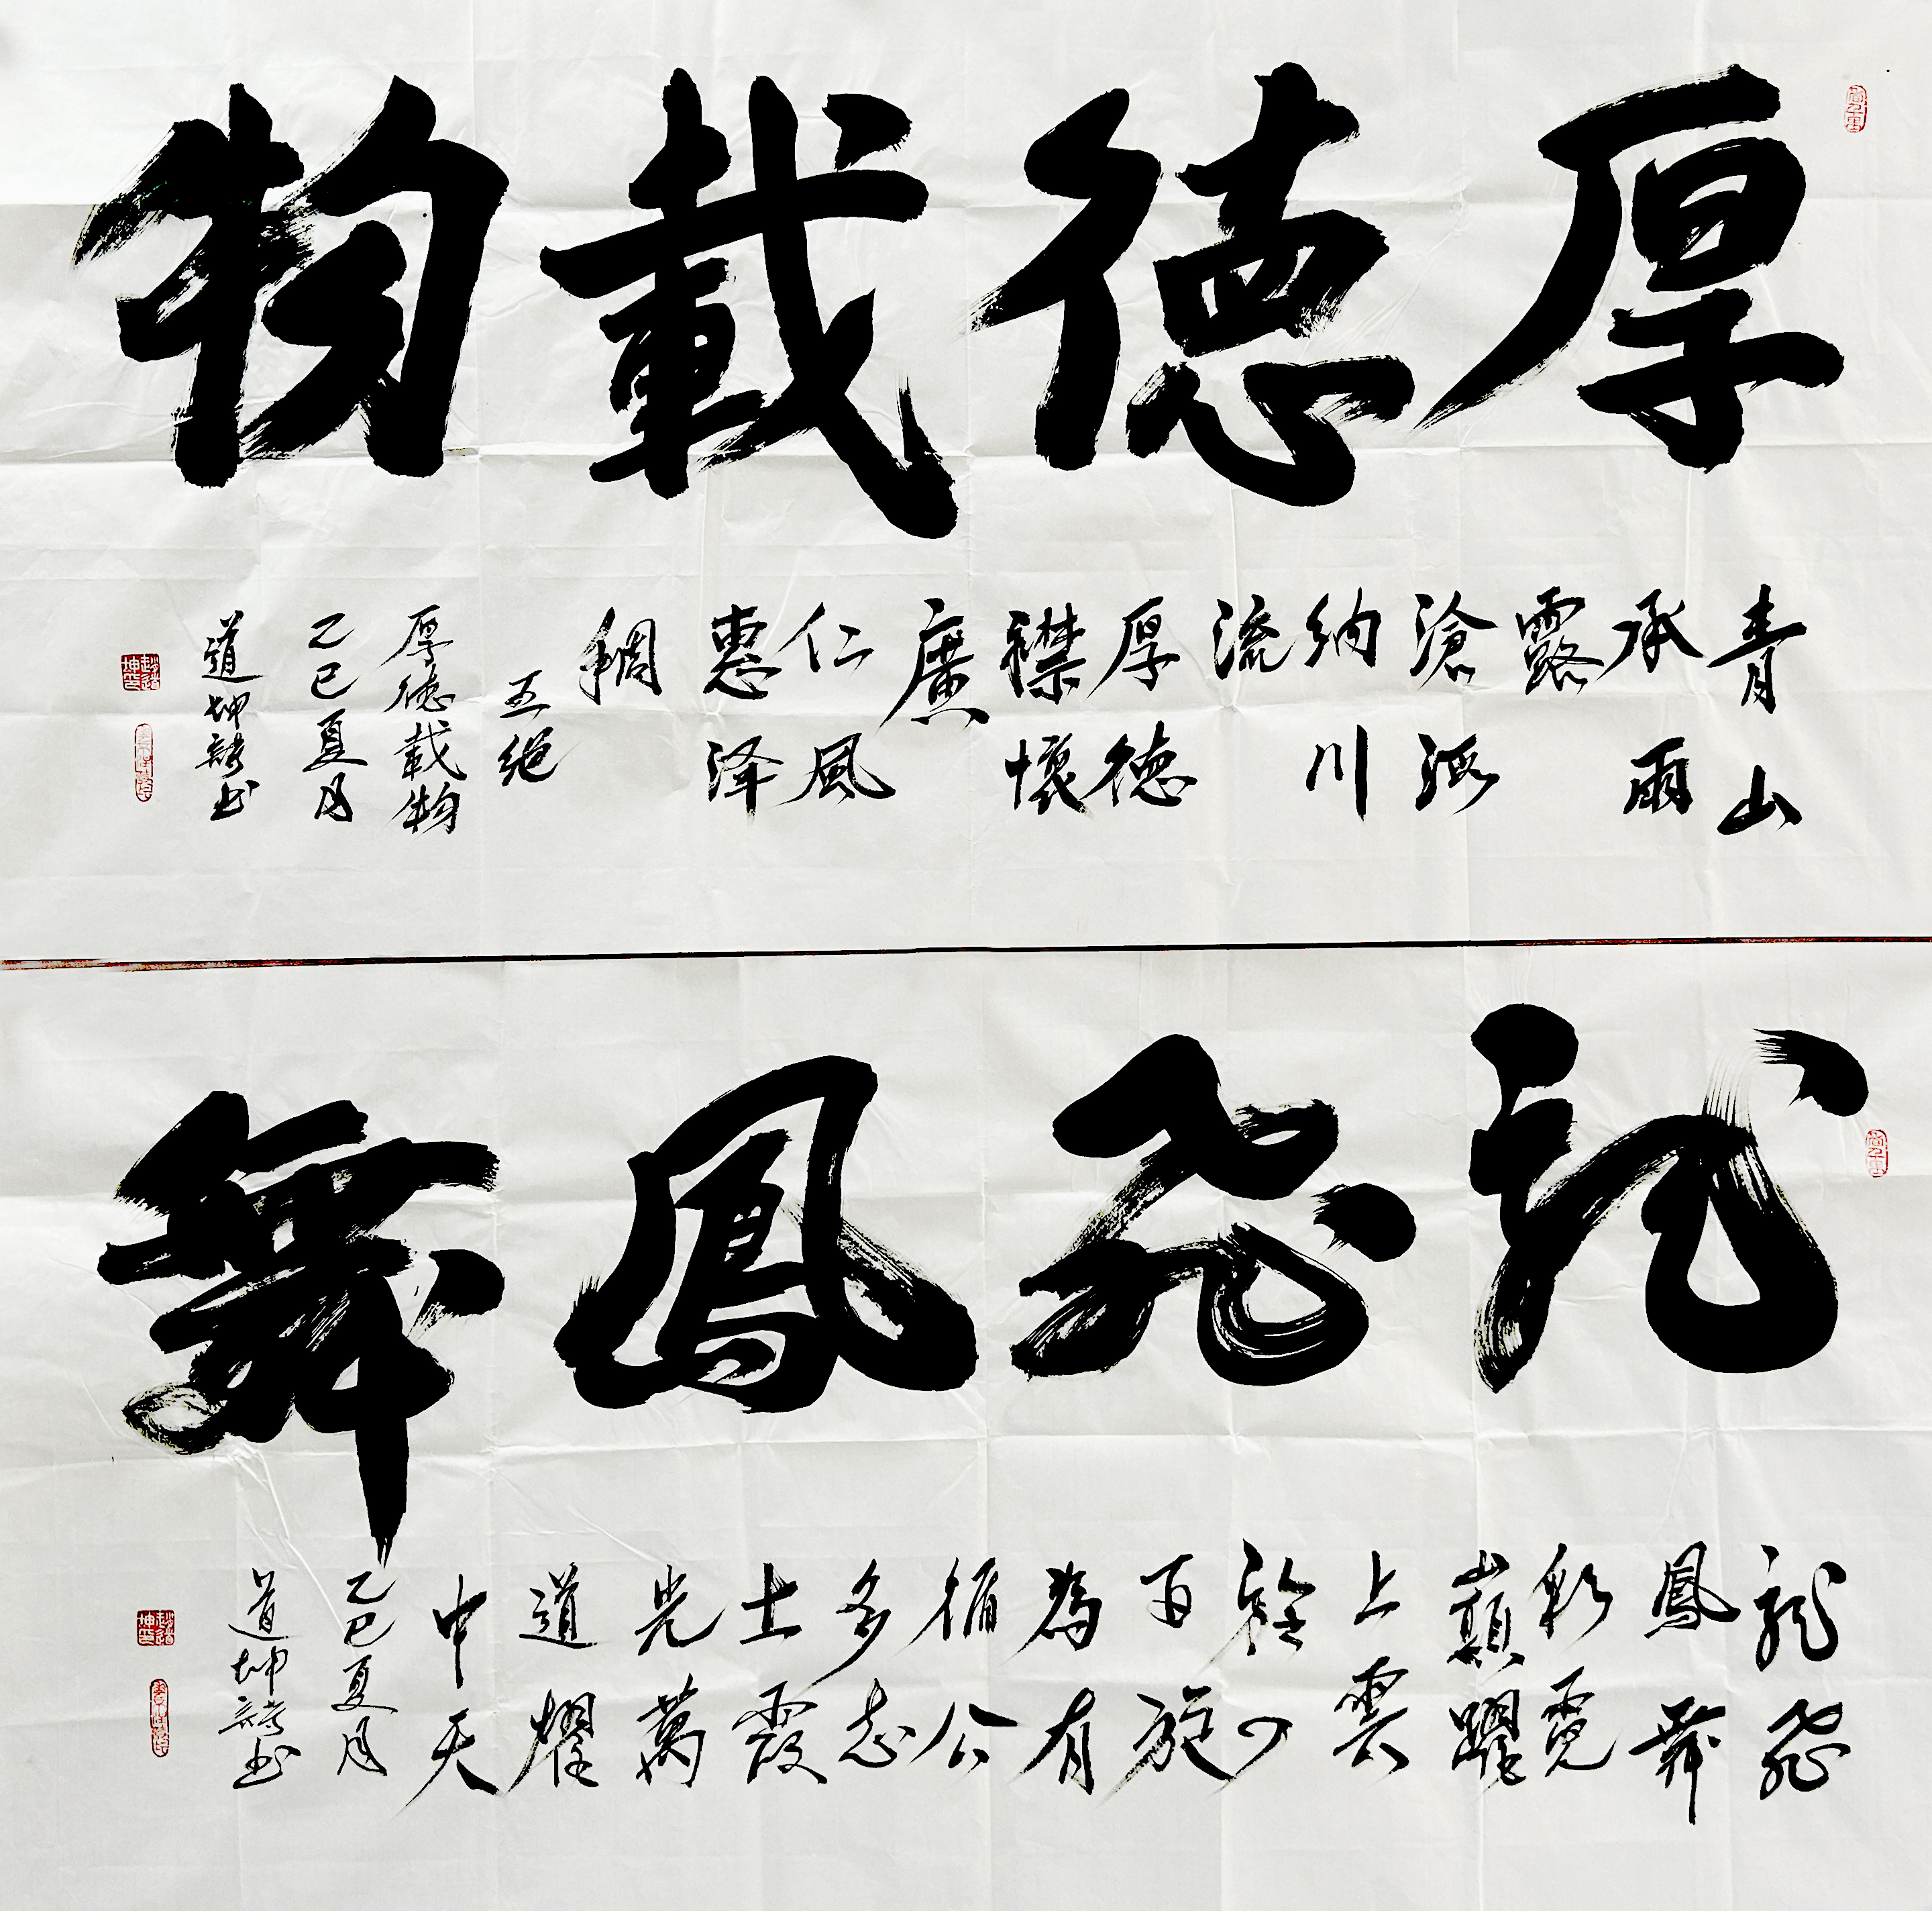 厚德載物
青山
承雨
露
滄海
納川
流
厚德
襟懷
廣
仁風
惠泽
稠
五绝
厚德載物
乙巳夏月
道坤詩书
趙道坤印
龍飛鳳舞
龍飛
鳳舞
彩霓
巔躍
上雲
百旋
為有
循公
多志
士霞
光萬
道耀
中天
乙巳夏月
道坤詩书
趙道坤印